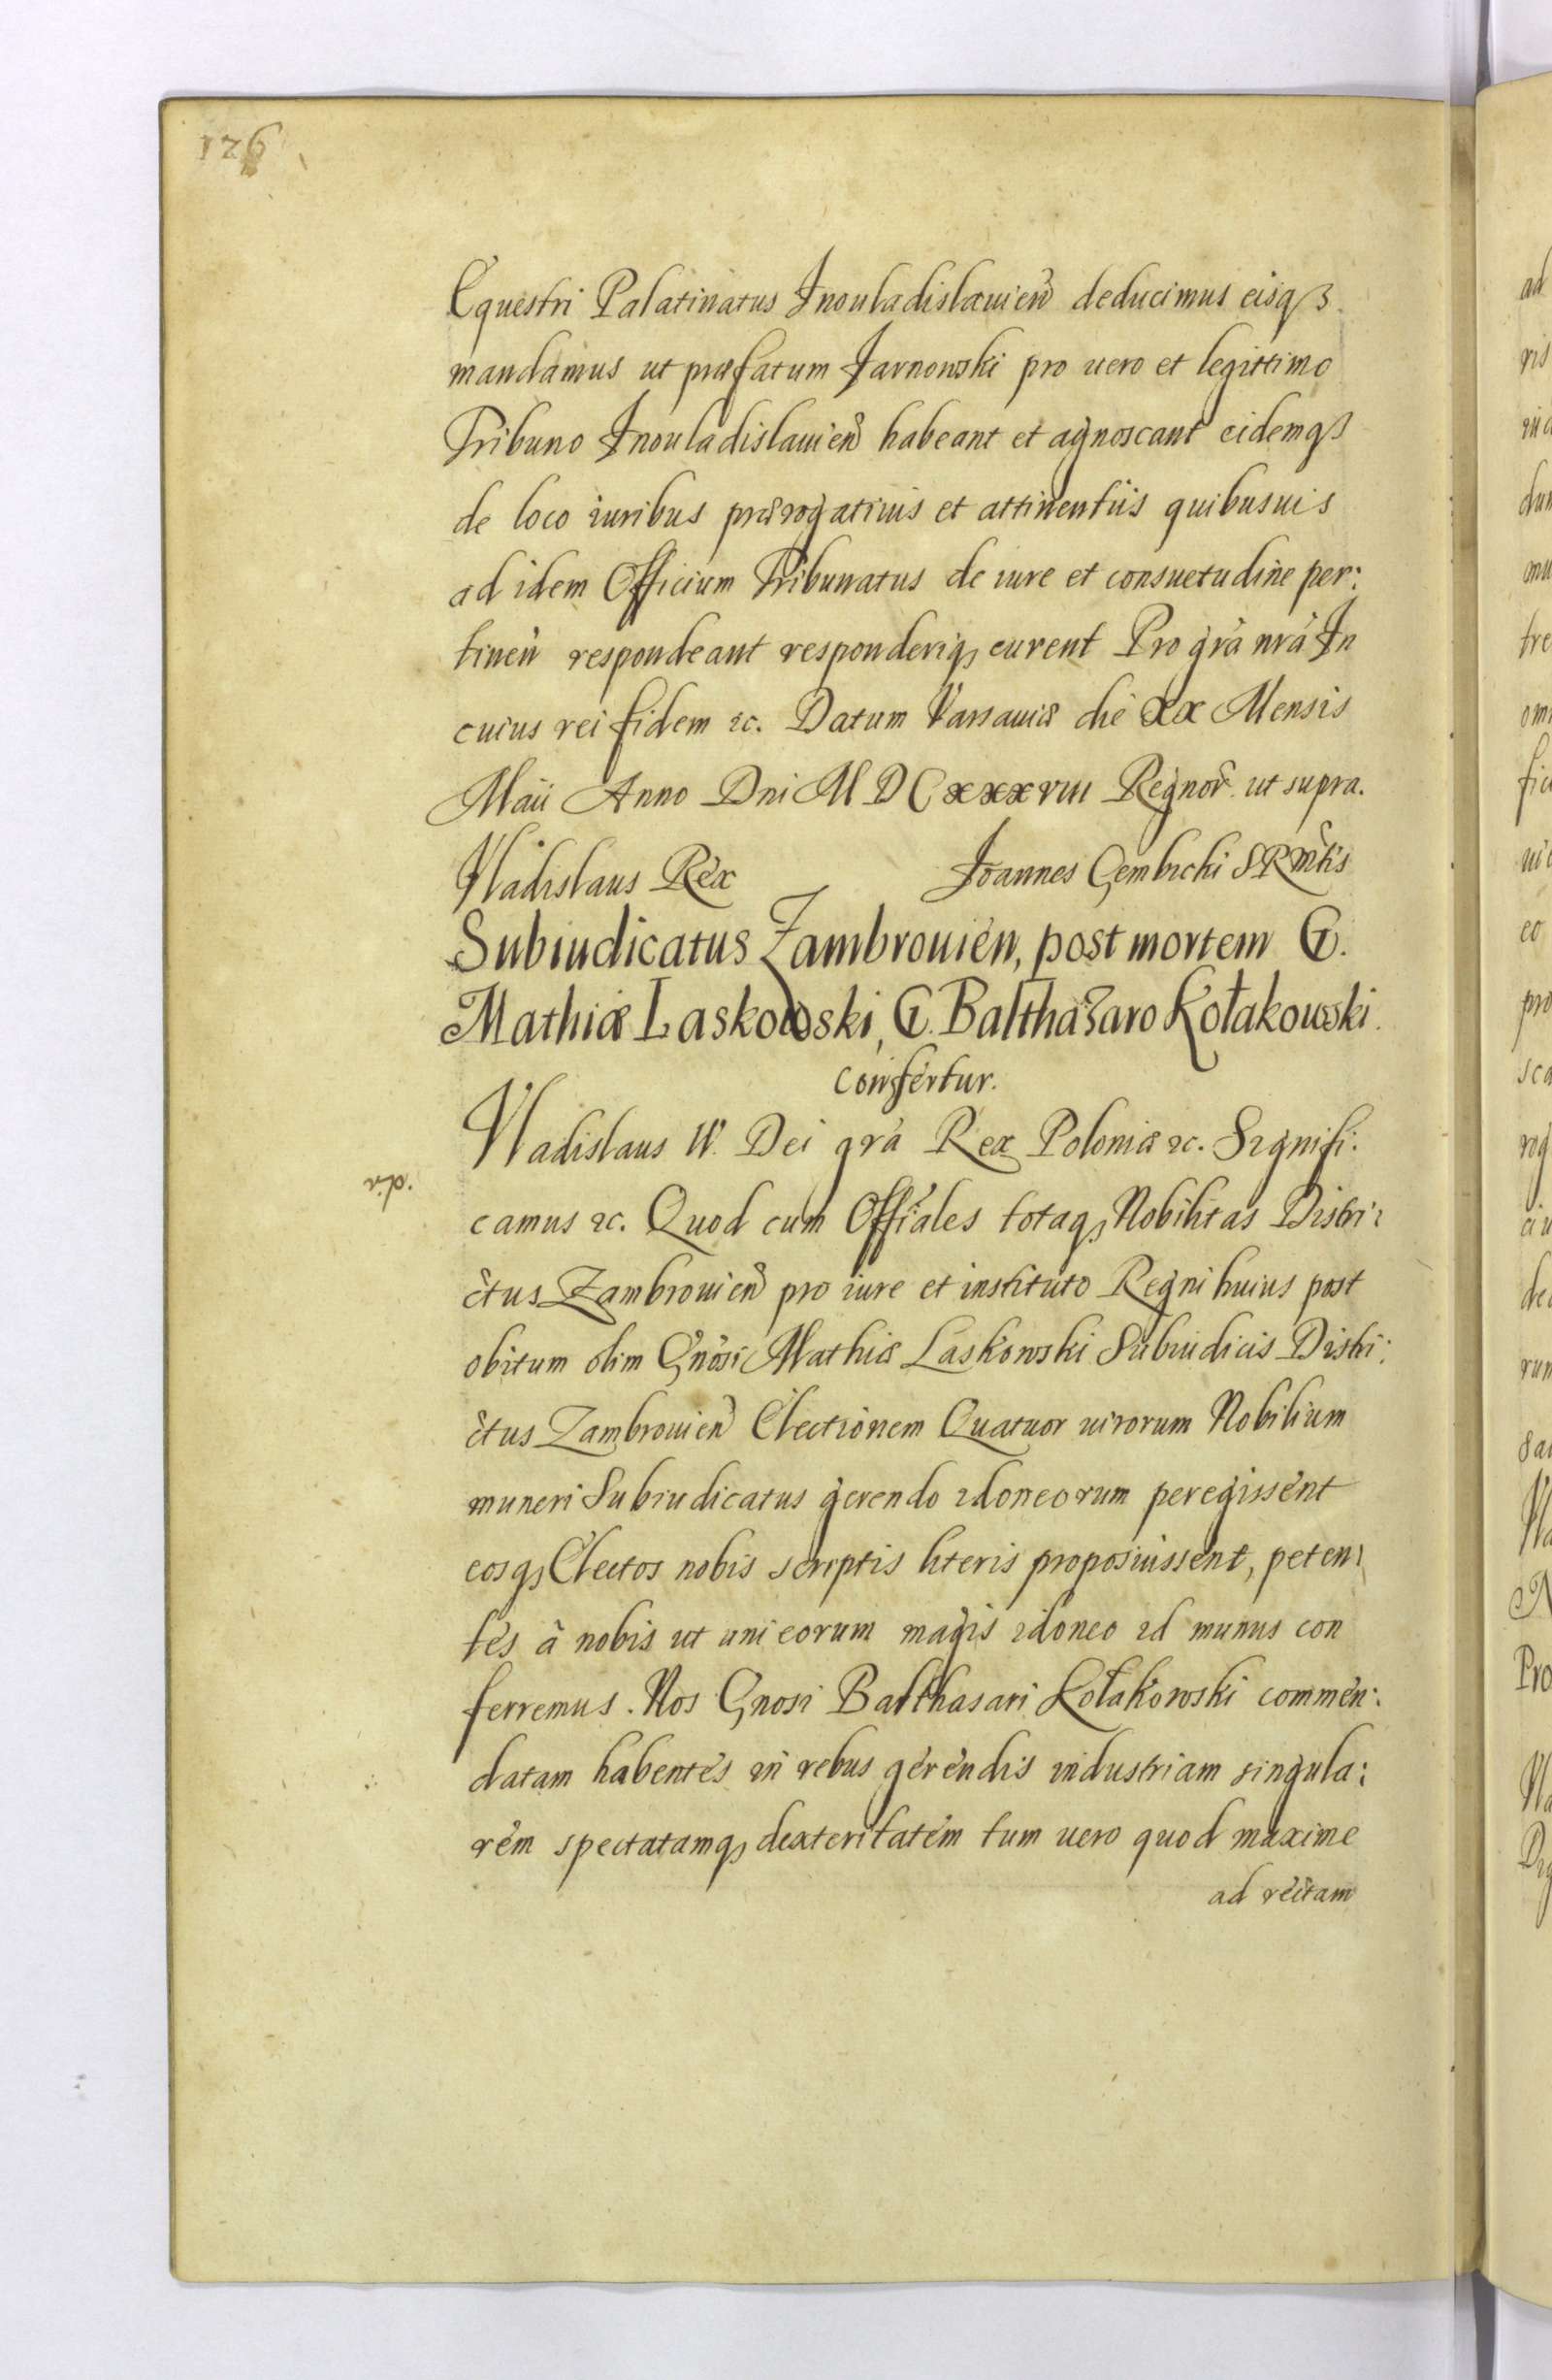 126
Equestri Palatinatus Inouladislauien deducimus eisqꝫ
mandamus ut præfatum Jarnowski pro uero et legittimo
Tribuno Inouladislauien habeant et agnoscant eidemqꝫ
de loco iuribus prærogatiuis et attinentiis quibusuis
ad idem Officium Tribunatus de iure et consuetudine per:
tinen respondeant responderiqꝫ curent Pro grã nrã In
cuius rei fidem ꝛc. Datum Varsauiæ die XX Mensis
Maii Anno Dni M D C xxx viii Regnor ut supra.
Vladislaus Rex Joannes Gembicki S R Mtis
Subiudicatus Zambrouien, post mortem G.
Mathiæ Laskowski, G. Balthazaro Kołakowski
confertur.
Vladislaus IV. Dei grã Rex Poloniæ ꝛc. Signifi:
camus ꝛc. Quod cum Offiales totaqꝫ Nobilitas Distri:
ctus Zambrouien pro iure et instituto Regni huius post
obitum olim Gnosi Mathiæ Laskowski Subiudicis Distri:
ctus Zambrouien Electionem Quatuor uirorum Nobilium
muneri Subiudicatus gerendo idoneorum peregissent
eosqꝫ Electos nobis scriptis literis proposuissent, peten:
tes à nobis ut uni eorum magis idoneo id munus con
ferremus. Nos Gnosi Balthasari Kołakowski commen:
datam habentes in rebus gerendis industriam singula:
rem spectatamqꝫ dexteritatem tum uero quod maxime
ad rectam